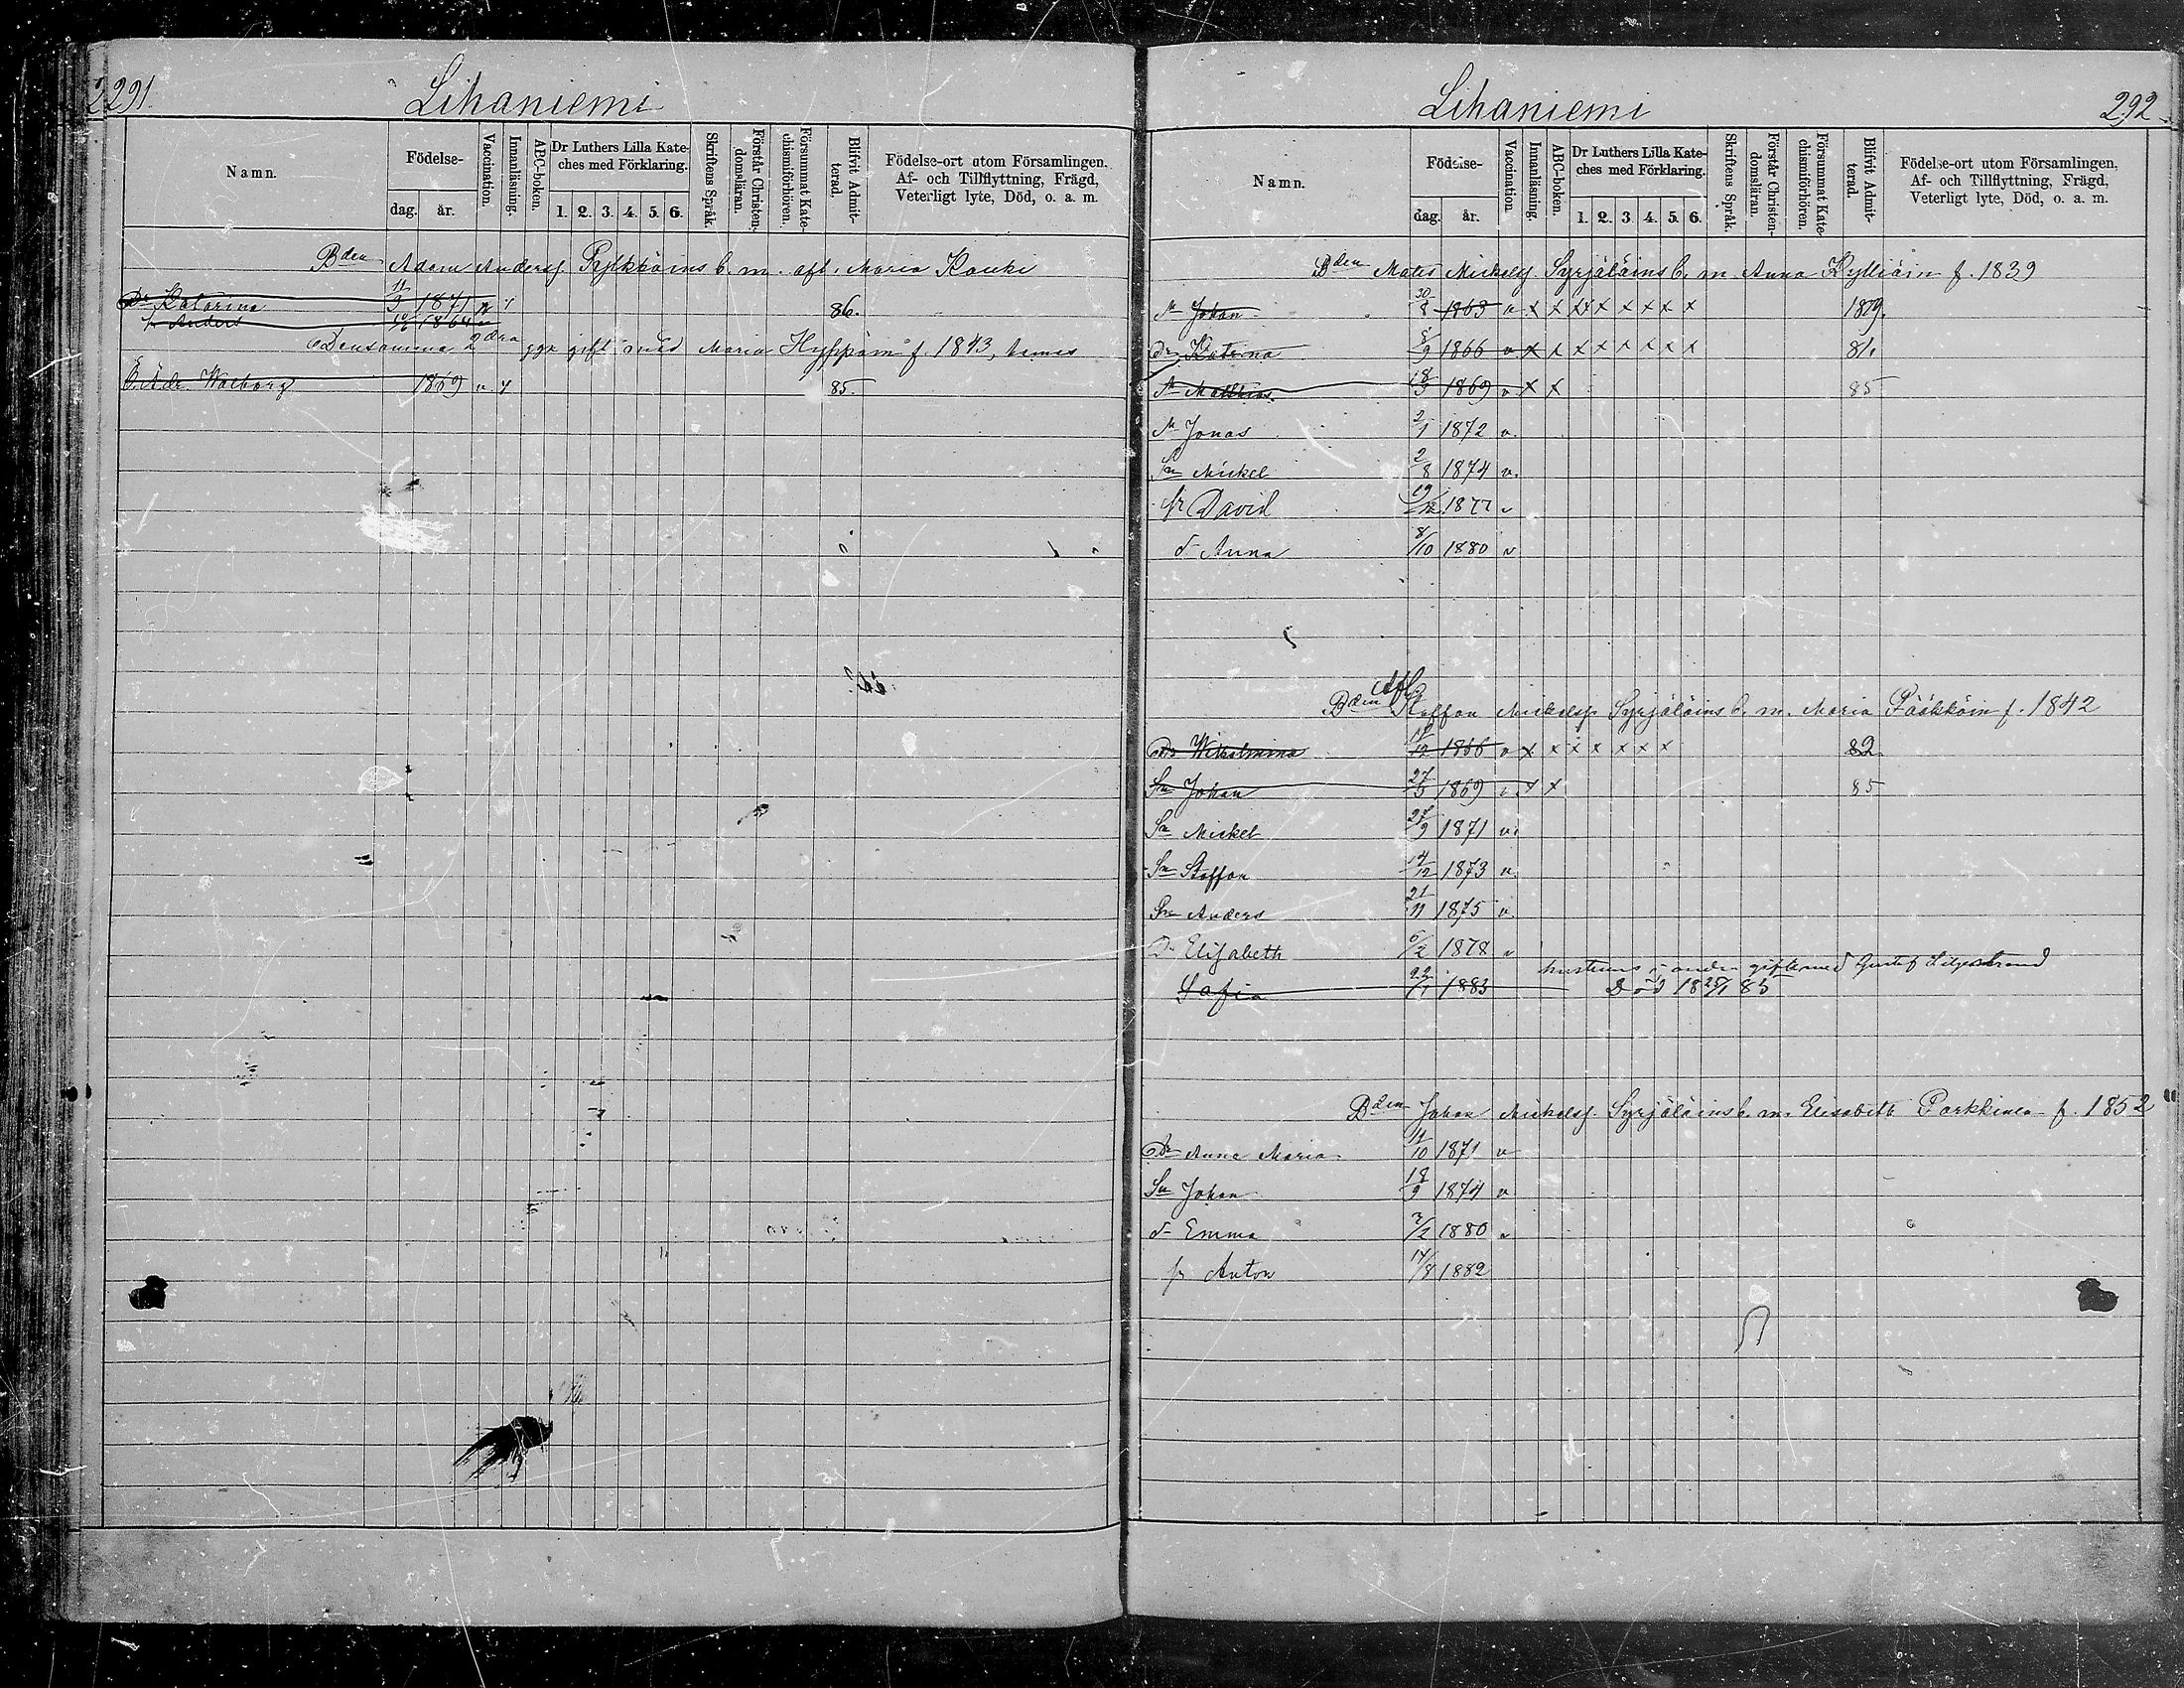 291
Lihaniemi
Namn.
Födelse-
dag.
år.
Vaccination.
Innanläsning.
ABC-boken.
Dr Luthers Lilla Kate-
ches med Förklaring.
1. 2. 3. 4. 5. 6.
Skriftens Språk.
Förstår Christen-
domsläran.
Försummat Kate-
chismiförhören.
Blifvit Admit-
terad.
Födelse-ort utom Församlingen.
Af- och Tillflyttning, Frägd,
Veterligt lyte, Död, o. a. m.
Bden Adam Andersf. Pylkköins b. m. afl. Maria Kauki
Dr Katarina 11/9 1871 v x 86.
Anders 1864 v
Densamma 2dra ggr gift med Maria Hyppöin f. 1843, hennes
Ä dr Walborg 1869 v x 85.
Lihaniemi
292
Namn.
Födelse-
dag.
år.
Vaccination
Innanläsning.
ABC-boken.
Dr Luthers Lilla Kate-
ches med Förklaring.
1. 2. 3. 4. 5. 6.
Skriftens Språk.
Förstår Christen-
domsläran.
Försummat Kate-
chismiförhören.
Blifvit Admit-
terad.
Födelse-ort utom Församlingen,
Af- och Tillflyttning, Frägd,
Veterligt lyte, Död, o. a. m.
Bden Mats Mickelsf. Syrjäläins b. m. Anna Kylliäin f. 1839
Sn Johan 30/8 1863 v x x x x x x x x 1879.
Dr Katrina 8/9 1866 v x x x x x x x x 81.
Sn Mathias 18/3 1869 v x x 85
Sn Jonas 2/1 1872 v.
Sn Mickel 2/8 1874 v.
sn David 19/12 1877 v
dr Anna 8/10 1880 v
Bden Afl. Staffan Mickelsf. Syrjäläins b. m. Maria Pääkköin f. 1842
Dr Wilhelmina 17/12 1866 v x x x x x x x 82
Sn Johan 27/5 1869 v. x x 85
Sn Mickel 27/9 1871 v.
Sn Staffan 14/12 1873 v.
Sn Anders 21/11 1875 v.
Dr Elisabeth 6/2 1878 v
hustruns i andra gifte med Gustaf Liljestrand
Sofia 22/1 1883 Död 18 25/1 85
Bden Johan Mickelsf. Syrjäläins b. m. Elisabeth Parkkinen f. 1852
Dr Anna Maria 11/10 1871 v
Sn Johan 18/9 1874 v
dr Emma 3/2 1880 v
sn Anton 14/8 1882